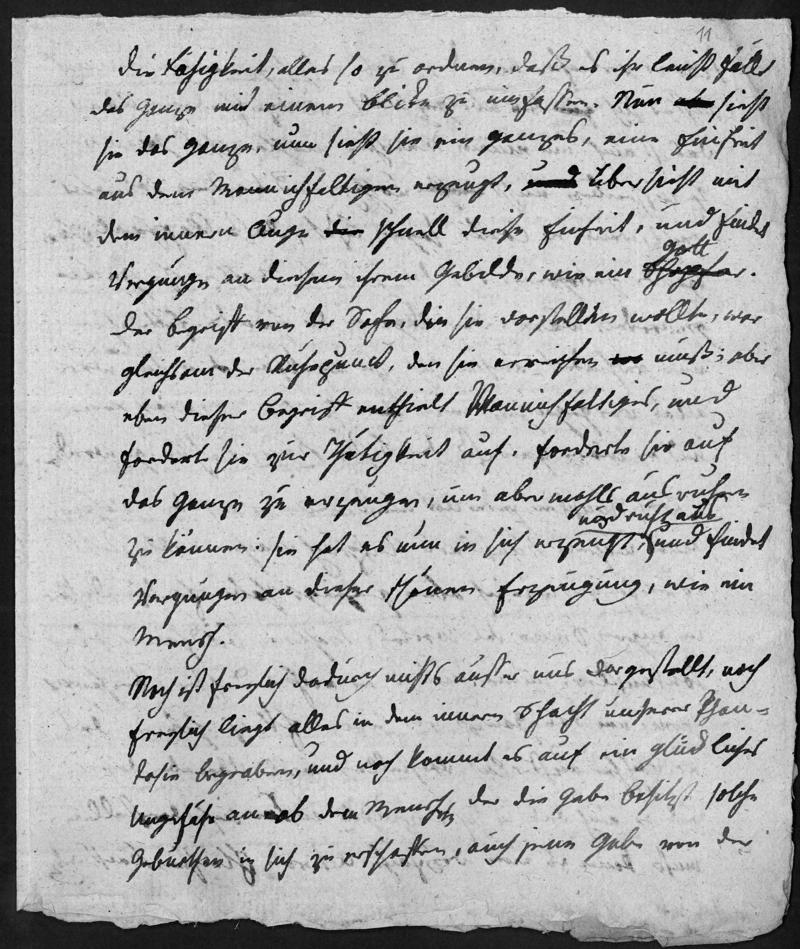 11
die Fähigkeit, alles so zu ordnen, daß es ihr leicht fällt
das Ganze mit einem Blicke zu umfassen. Nun sieht
sie das Ganze, nun sieht sie ein ganzes, eine Einheit
aus dem Mannichfaltigen erzeugt, und übersieht mit
dem innern Auge die schnell diese Einheit, und findet
Vergnügen an diesem ihrem Gebilde, wie ein Schöpfer.
Gott
Der Begriff von der Sache, die sie vorstellen wollte, war
gleichsam der Ruhepunct, den sie erreichen muß; aber
eben dieser Begriff enthielt Mannichfaltiges, und
forderte sie zur Thätigkeit auf, forderte sie auf
das Ganze zu erzeugen, um aber mahls ausruhen
und ruht aus
zu können: sie hat es nun in sich erzeugt, und findet
Vergnügen an dieser schönen Erzeugung, wie ein
Mensch.
Noch ist freylich dadurch nichts ausser uns dargestellt, noch
freylich liegt alles in dem innern Schacht unserer Phan-
tasie begraben, und noch kommt es auf ein glückliches
Ungefähr an, ob dem Menschen, der die Gabe besitzt solche
Geburthen in sich zu erschaffen, auch jene Gabe von der